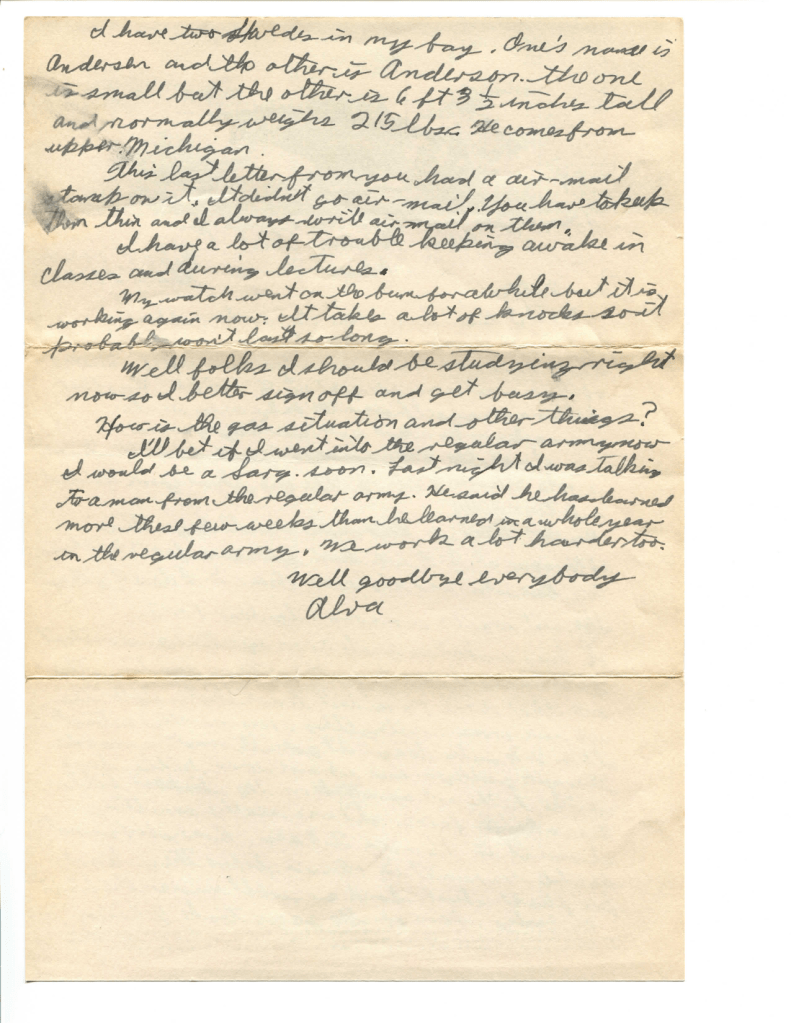 I have two Swedes in my bay. One's name is
Andersen and the other is Anderson. the one
is small but the other is 6 ft 3 ½ inches tall
and normally weighs 215 lbs. He comes from
upper Michigan.
This last letter from you had a air-mail
stamp on it. It didn't go air-mail. You have to keep
them thin and I always write air mail on them.
I have a lot of trouble keeping awake in
classes and during lectures.
My watch went on the bum for awhile but it is
working again now. It takes a lot of knocks so it
probably won't last so long.
Well folks I should be studying right
now so I better sign off and get busy.
How is the gas situation and other things?
I'll bet if I went into the regular army now
I would be a Sarg. soon. Last night I was talking
to a man from the regular army. He said he has learned
more these few weeks than he learned in a whole year
in the regular army. We work a lot harder too.
Well goodbye everybody
Alva